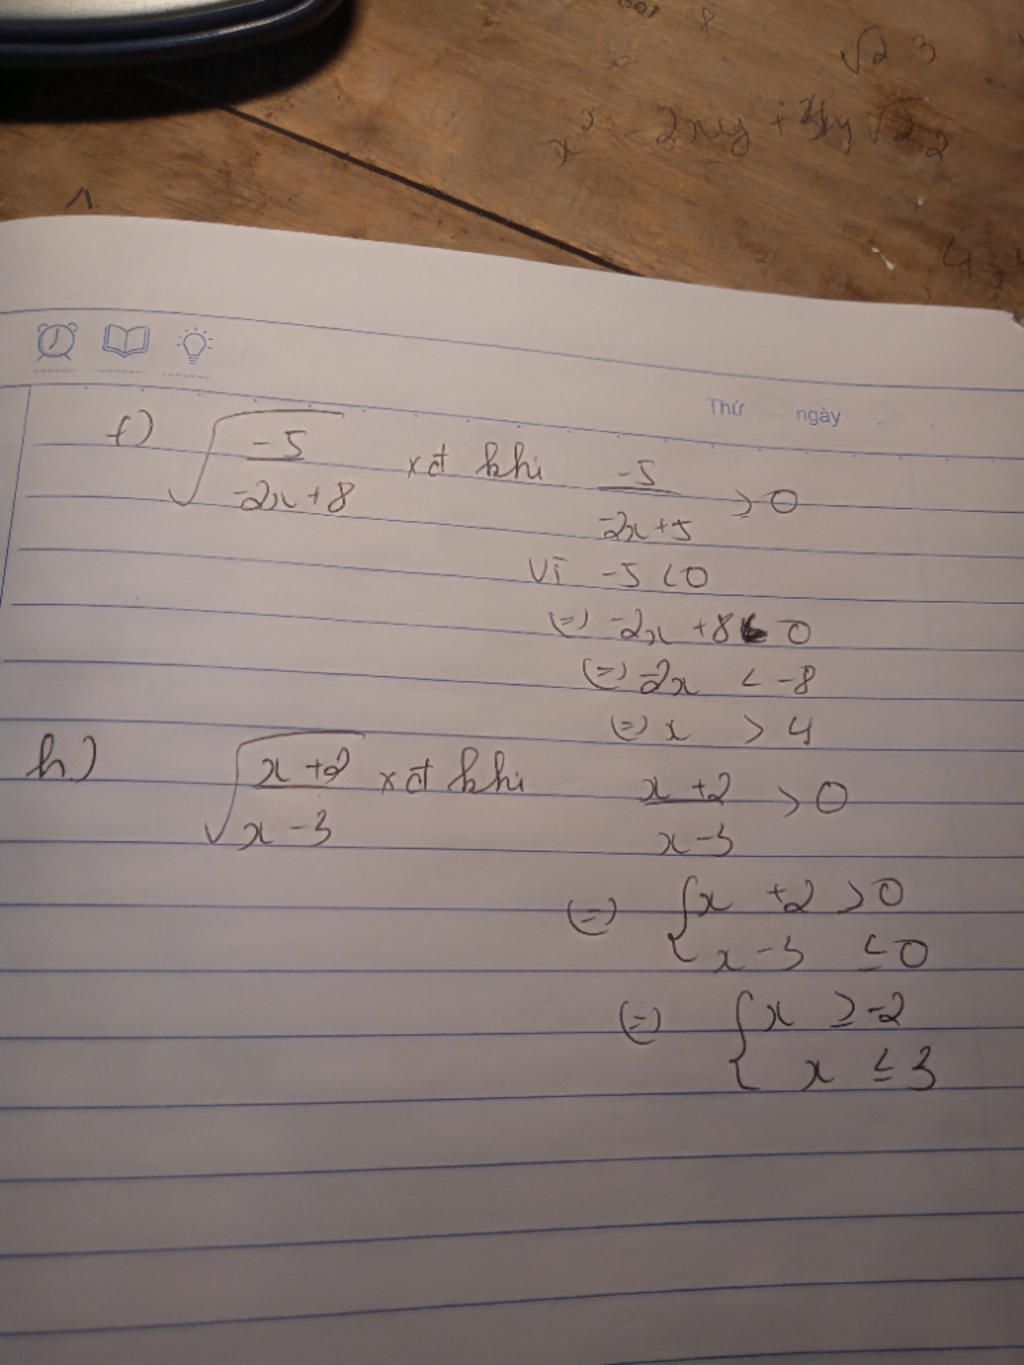 √2 3
x² - 2xy + √2 2
Thứ ngày
f) √(-5/(-2x+8)) xđ khi -5/(-2x+5) ≥ 0
Vì -5 < 0
(=) -2x +8 < 0
(=) -2x < -8
(=) x > 4
h) √((x+2)/(x-3)) xđ khi (x+2)/(x-3) > 0
(=) { x +2 > 0
x-3 ≤ 0
(=) { x ≥ -2
x ≤ 3